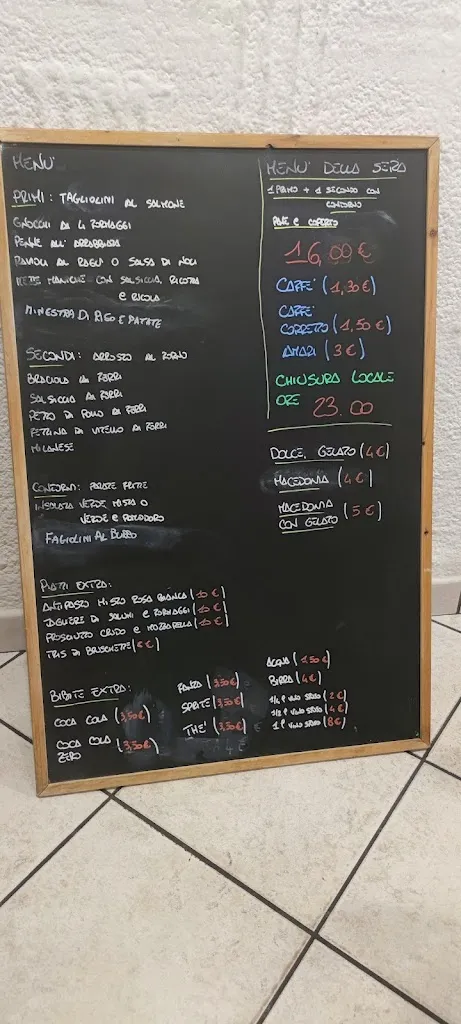 MENU'
PRIMI: TAGLIOLINI AL SALMONE
GNOCCHI AI 4 FORMAGGI
PENNE ALL' ARRABBIATA
RAVIOLI AL RAGU' O SALSA DI NOCI
MEZZE MANICHE CON SALSICCIA, RICOTTA
E RUCOLA
MINESTRA DI RISO E PATATE
SECONDI: ARROSTO AL FORNO
BRACIOLA AI FERRI
SALSICCIA AI FERRI
PETTO DI POLLO AI FERRI
FETTINA DI VITELLO AI FERRI
MILANESE
CONTORNI: PATATE FRITTE
INSALATA VERDE MISTA O
VERDE E POMODORO
FAGIOLINI AL BURRO
PIATTI EXTRA:
ANTIPASTO MISTO ROSA BIANCA (10 €)
TAGLIERE DI SALUMI E FORMAGGI (10 €)
PROSCIUTTO CRUDO E MOZZARELLA (10 €)
TRIS DI BRUSCHETTE (6 €)
BIBITE EXTRA:
COCA COLA (3,50 €)
COCA COLA
ZERO (3,50 €)
FANTA (3,50 €)
SPRITE (3,50 €)
THE' (3,50 €)
ACQUA (1,50 €)
BIRRA (4 €)
1/4 VINO SFUSO (2 €)
1/2 VINO SFUSO (4 €)
1 L VINO SFUSO (8 €)
MENU' DELLA SERA
1 PRIMO + 1 SECONDO CON
CONTORNO
PANE E COPERTO
16,00 €
CAFFE' (1,30 €)
CAFFE'
CORRETTO (1,50 €)
AMARI (3 €)
CHIUSURA LOCALE
ORE 23.00
DOLCE, GELATO (4 €)
MACEDONIA (4 €)
MACEDONIA
CON GELATO (5 €)